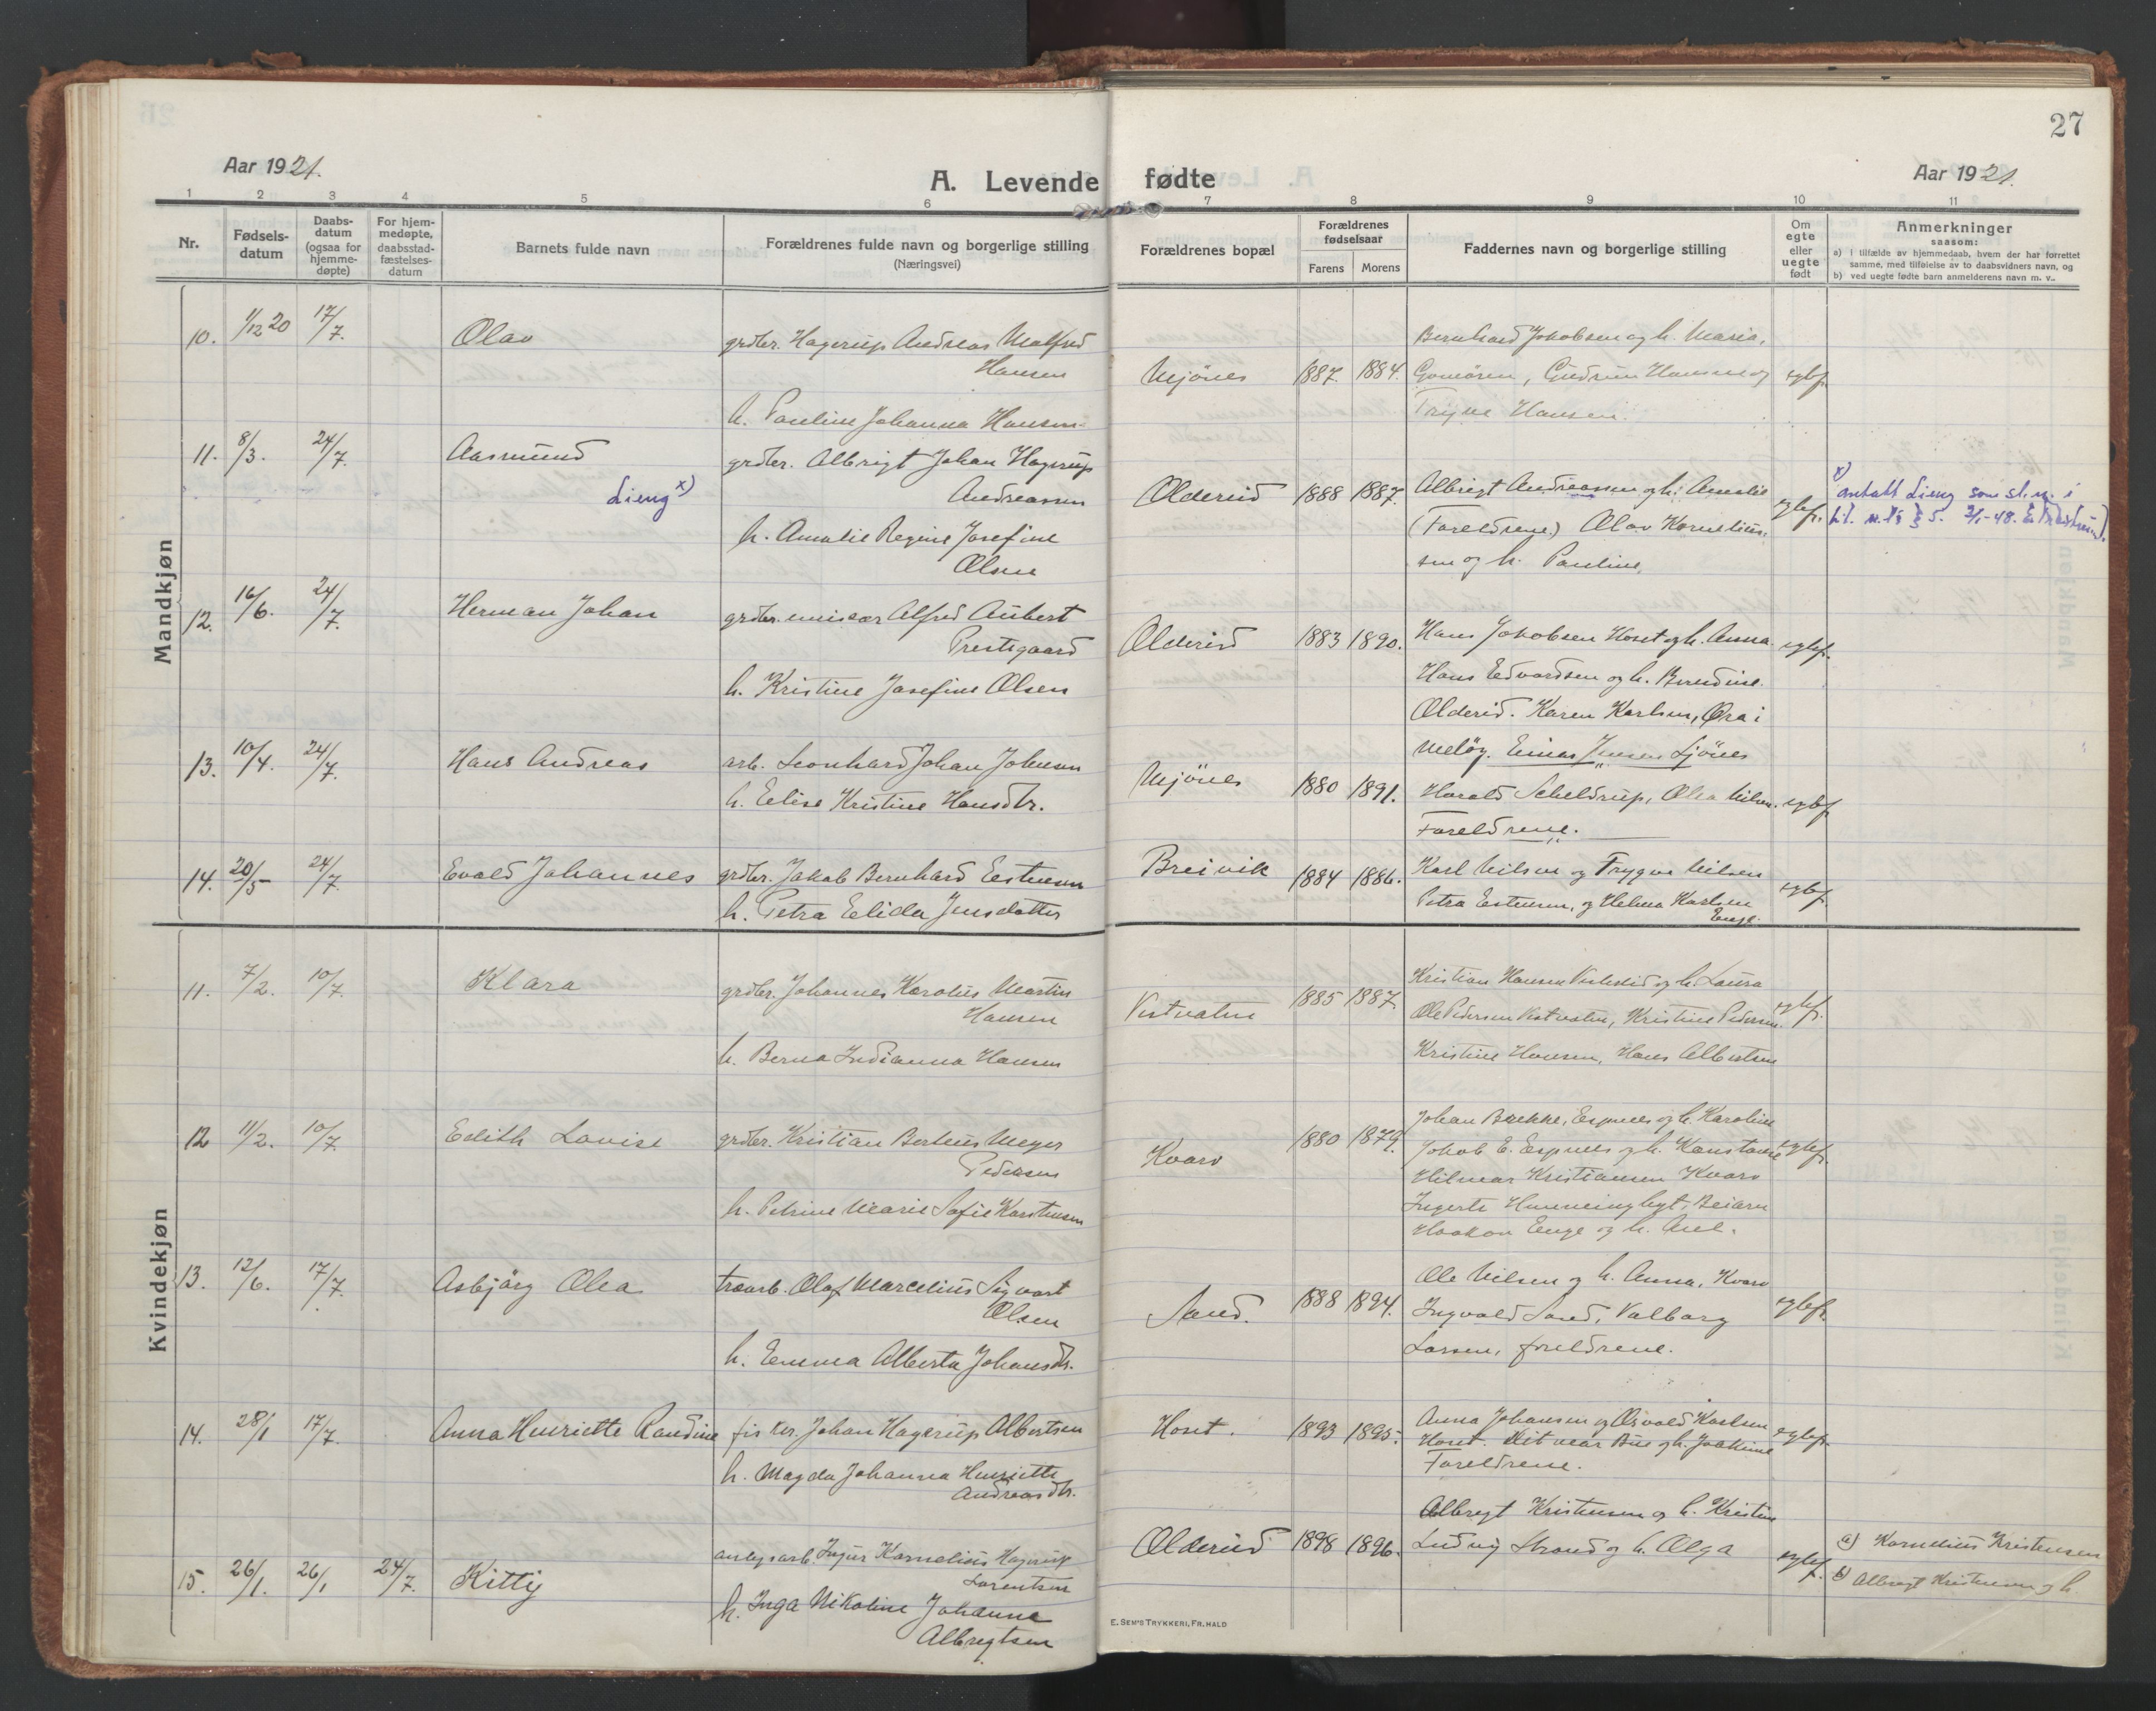 27
Aar 1921.
A. Levende fødte
Aar 1921.
1 2 3 4 5 6 7 8 9 10 11
Nr.
Fødsels-
datum
Daabs-
datum
(ogsaa for
hjemme-
døpte)
For hjem-
medøpte,
daabsstad-
fæstelses-
datum
Barnets fulde navn
Forældrenes fulde navn og borgerlige stilling
(Næringsvei)
Forældrenes bopæl
Forældrenes
fødselsaar
Farens Morens
Faddernes navn og borgerlige stilling
Om
egte
eller
uegte
født
Anmerkninger
saasom:
a) i tilfælde av hjemmedaab, hvem der har forrettet
samme, med tilføielse av to daabsvidners navn, og
b) ved uegte fødte barn anmelderens navn m. v..
Mandkjøn
10. 1/12 20 17/7. Olav
grdbr. Hagerup Andreas Malfred
Hansen
h. Pauline Johanna Hansen
Mjönes 1887. 1884.
Bernhard Jakobsen og h. Maria,
Gudrun Hansen og
Trygve Hansen.
egtef.
11. 8/3. 24/7. Aasmund
Lieng x)
grdbr. Albrigt Johan Hagerup
Andreassen
h. Amalie Regine Josefine
Olsen
Oldereid 1888 1887.
Albrigt Andreassen og h. Amalie
(Foreldrene.) Olav Kornelius-
sen og h. Pauline.
egtef.
x)
antatt Lieng som sl.n. i
h.t. § 5. 2/1-48.
12. 16/6. 24/7. Herman Johan
grdbr. Alfred Aubert
Prestegaard
h. Kristine Josefine Olsen
Oldereid 1883 1890.
Hans Jakobsen Hoset og h. Anna.
Hans Edvardsen og h. Berndine.
Oldereid. Karen Karlsen, Öra i
Melöy. Einar Jensen Ljönes
egtef.
13. 10/4. 24/7. Hans Andreas
arb. Leonhard Johan Johnsen
h. Elise Kristine Hansdtr.
Mjönes 1880 1891.
Harald Scheldrup, Olea Nilsen.
Foreldrene.
egtef.
14. 20/5 24/7. Evald Johannes
grdbr. Jakob Bernhard Estensen
h. Petra Elida Jensdatter
Breivik 1884 1886.
Karl Nilsen og Trygve Nilsen
Petra Estensen, og Helma Karlsen
Enge.
egtef.
Kvindekjøn
11. 7/2. 10/7. Klara
grdbr. Johannes Karolus Martin
Hansen
h. Berna Indianna Hansen
Vestvatn 1885 1887.
Kristian Hansen og h. Laura
Ole Pedersen Vestvatn, Kristine Pedersen.
Kristine Hansen, Hans Albertsen
egtef.
12 11/2. 10/7. Edith Lovise
grdbr. Kristian Berteus Meyer
Pedersen
h. Petrine Marie Sofie Karstensen
Kvarv 1880 1879.
Johan Brekke, Espnes og h. Karoline
Jakob E. Espnes og h. Konstanse
Hilmar Kristiansen Kvarv
Beiarn
Haakon Enge og h. Ane.
egtef.
13. 12/6. 17/7. Asbjörg Olea
træarb. Olaf Marcelius Sigvart
Olsen
h. Emma Alberta Johansdtr.
Sand. 1888 1894.
Ole Nilsen og h. Anna, Kvarv
Ingvald Sand, Valborg
Larsen, foreldrene.
egtef.
14. 28/1 17/7. Anna Henriette Randine
fisker. Johan Hagerup Albertsen
h. Magda Johanna Henriette
Andreasdtr.
Hoset. 1893 1895.
Anna Johansen og Osvald Karlsen
Hoset. Ditmar Bue og h. Joakime
Foreldrene.
egtef.
15. 26/1. 26/1 24/7. Kitty
anlegsarb. Kornelius Hagerup
Lorentsen
h. Inga Nikoline Johanne
Albregtsen
Oldereid 1898 1896.
Albregt Kristensen og h. Kristine
Ludvig Strand og h. Olga
egtef.
a) Kornelius Kristensen
b) Albregt Kristensen og h.
E. SEM'S TRYKKERI, FR. HALD